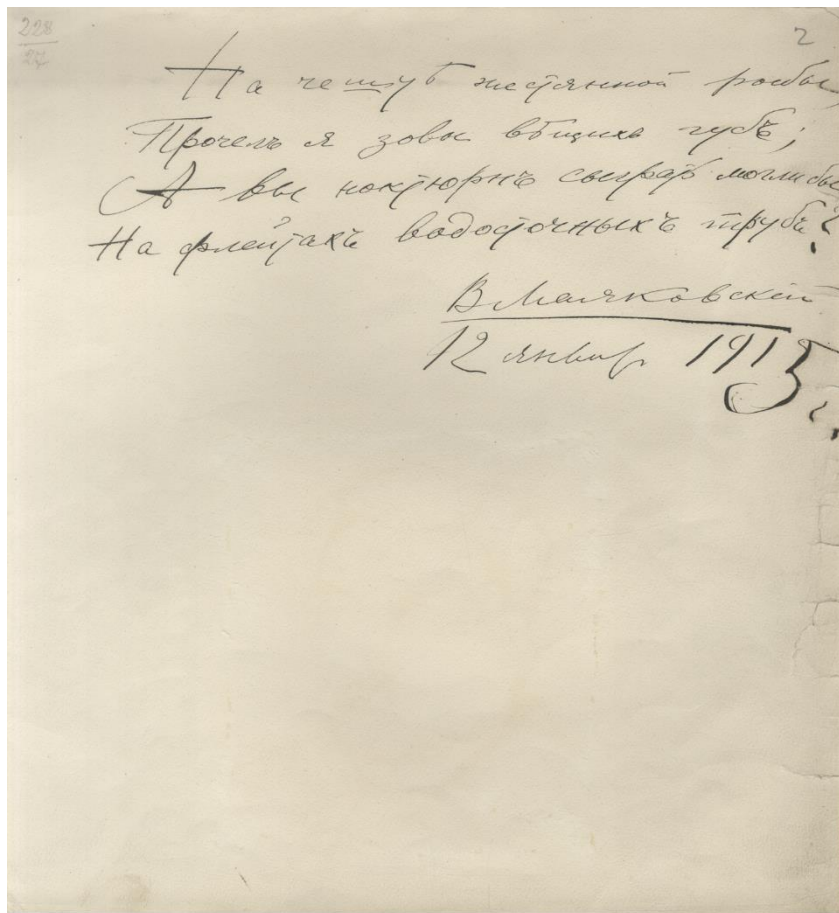 228
27
2
На чешуѣ жестяной рыбы
Прочелъ я зовы вѣщихъ губъ;
А вы ноктюрнъ сыграть могли бы
На флейтахъ водосточныхъ трубъ?
ВМаяковскій
12 январ 1915 г.